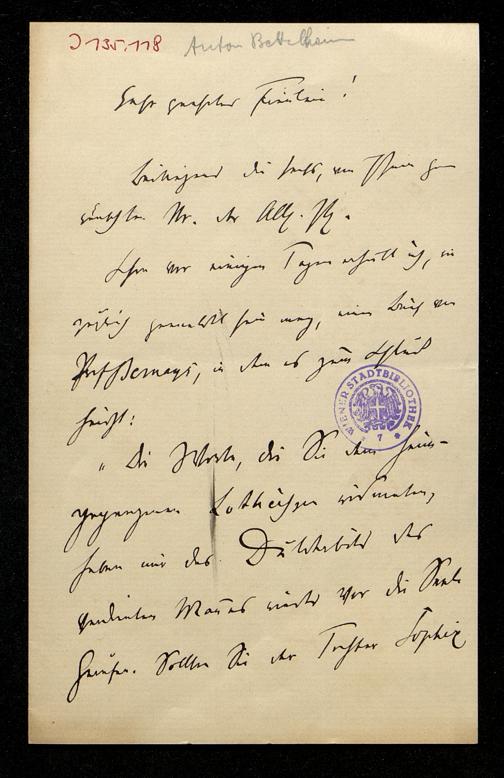 J 135.118 Anton Bettelheim
Sehr geehrtes Fräulein!
Beiliegend die sechs, von Ihnen ge-
wünschten Nr. der Allg. Ztg.
Schon vor einigen Tagen erhielt ich, wie
gemeldet sein mag, einen Brief von
Prof Bernays, in dem es zum Schluß
heißt:
„Die Worte, die Sie dem heim-
gegangenen Lotheißen widmeten,
haben mir das des
verdienten Mannes wieder vor die Seele
gerufen. Sollten Sie der Tochter Sophie
WIENER STADTBIBLIOTHEK
7